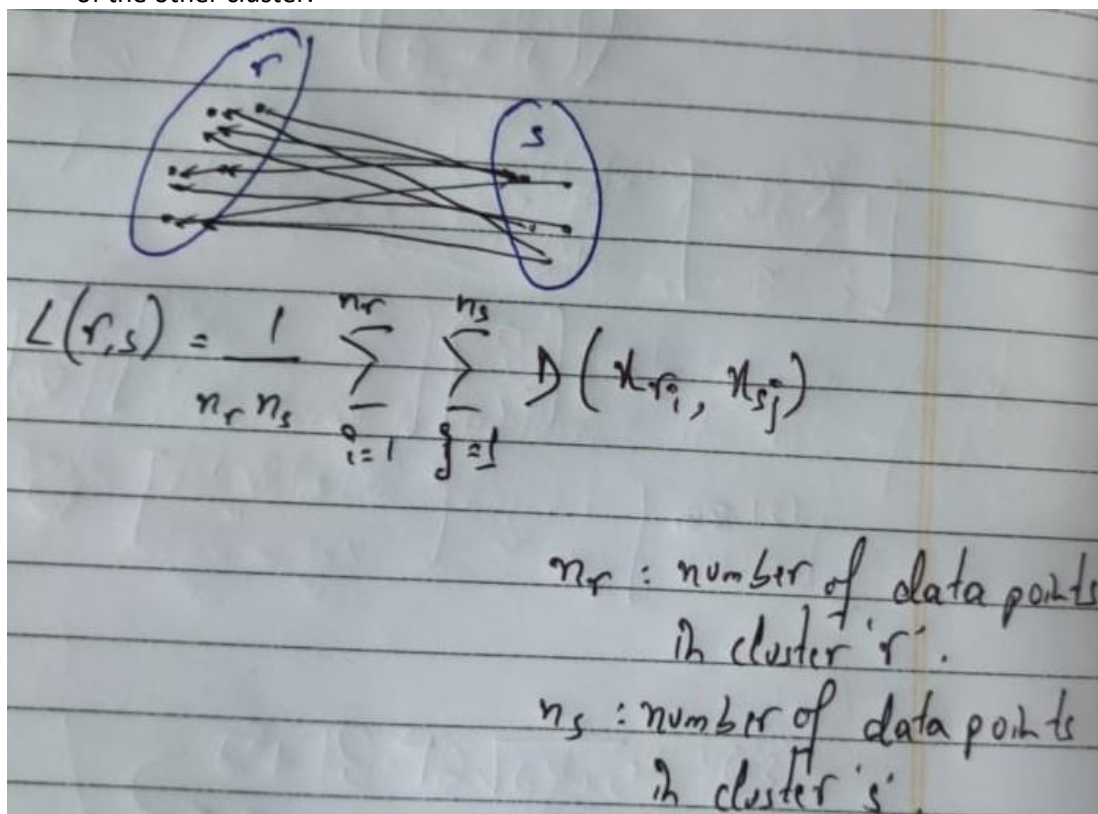 of the other cluster.
r
s
L(r,s) = 1/(n_r n_s) Σ_{i=1}^{n_r} Σ_{j=1}^{n_s} D(x_{r_i}, x_{s_j})
n_r : number of data points
in cluster 'r'.
n_s : number of data points
in cluster 's'.